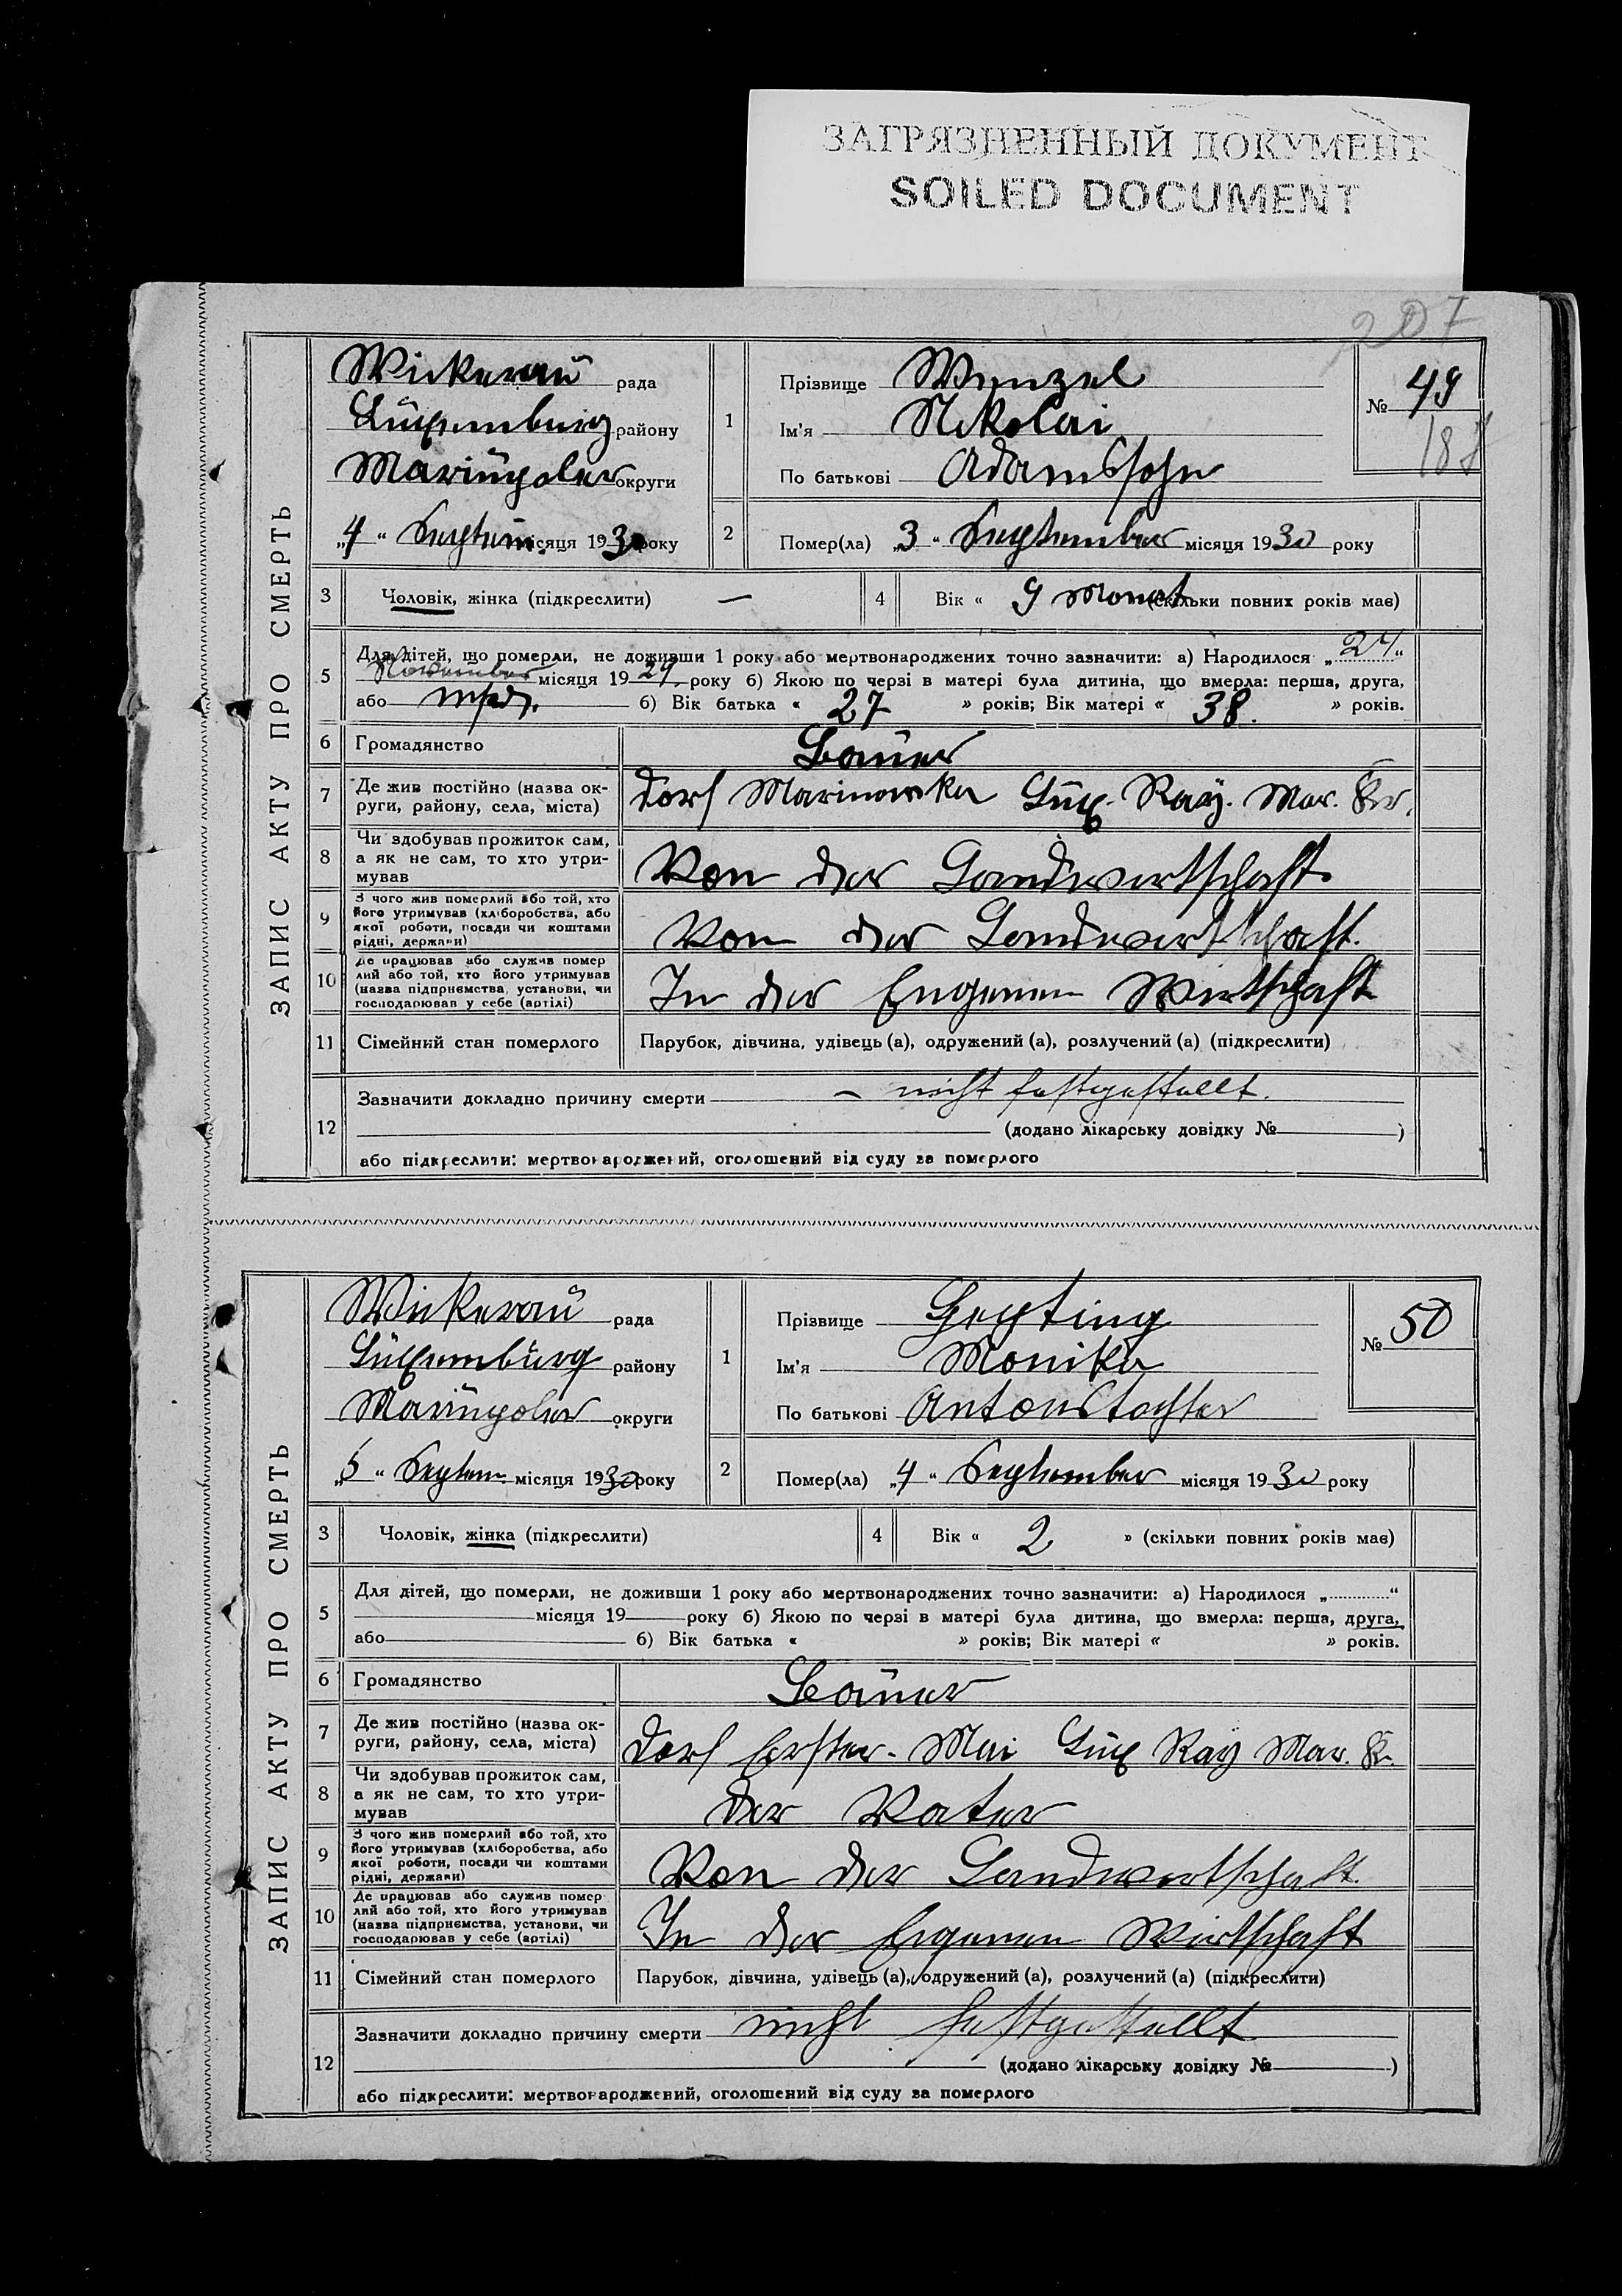 ЗАГРЯЗНЕННЫЙ ДОКУМЕНТ
SOILED DOCUMENT
207
ЗАПИС АКТУ ПРО СМЕРТЬ
Wickerau рада
Luxemburg районy
Mariupoler округи
„4“ Septem. місяця 1930 року
1
Прізвище Wenzel
Ім'я Nikolai
По батькові Adamssohn
№ 49
187
2 Помер(ла) „3“ September місяця 1930 року
3 Чоловік, жінка (підкреслити) —
4 Вік « 9 Monat (скільки повних років має)
5 Для дітей, що померли, не доживши 1 року або мертвонароджених точно зазначити: а) Народилося „24“
November місяця 1929 року б) Якою по черзі в матері була дитина, що вмерла: перша, друга,
або б) Вік батька « 27 » років; Вік матері « 38. » років.
6 Громадянство Bauer
7 Де жив постійно (назва округи, району, села, міста) Dorf Marinowka Lux. Ray. Mar. Kr.
8 Чи здобував прожиток сам, а як не сам, то хто утримував Von der Landwirtschaft.
9 З чого жив померлий або той, хто його утримував (хліборобства, або якої роботи, посади чи коштами рідні, держави) Von der Landwirtschaft.
10 Де працював або служив помер лий або той, хто його утримував (назва підприємства, установи, чи господарював у себе (артілі) In der Eigenen Wirtschaft
11 Сімейний стан померлого Парубок, дівчина, удівець (а), одружений (а), розлучений (а) (підкреслити)
12 Зазначити докладно причину смерти – nicht festgestellt.
(додано лікарську довідку № )
або підкреслити: мертвонароджений, оголошений від суду за померлого
ЗАПИС АКТУ ПРО СМЕРТЬ
Wickerau рада
Luxemburg району
Mariupoler округи
„5“ Septem. місяця 1930 року
1
Прізвище Geyting
Ім'я Monika
По батькові Antonstochter
№ 50
2 Помер(ла) „4“ September місяця 1930 року
3 Чоловік, жінка (підкреслити)
4 Вік « 2 » (скільки повних років має)
5 Для дітей, що померли, не доживши 1 року або мертвонароджених точно зазначити: а) Народилося „ “
місяця 19 року б) Якою по черзі в матері була дитина, що вмерла: перша, друга,
або б) Вік батька « » років; Вік матері « » років.
6 Громадянство Bauer
7 Де жив постійно (назва округи, району, села, міста) Dorf Erster-Mai Lux Ray Mar. Kr.
8 Чи здобував прожиток сам, а як не сам, то хто утримував der Vater
9 З чого жив померлий або той, хто його утримував (хліборобства, або якої роботи, посади чи коштами рідні, держави) Von der Landwirtschaft.
10 Де працював або служив помер лий або той, хто його утримував (назва підприємства, установи, чи господарював у себе (артілі) In der Eigenen Wirtschaft
11 Сімейний стан померлого Парубок, дівчина, удівець (а), одружений (а), розлучений (а) (підкреслити)
12 Зазначити докладно причину смерти nicht festgestellt
(додано лікарську довідку № )
або підкреслити: мертвонароджений, оголошений від суду за померлого